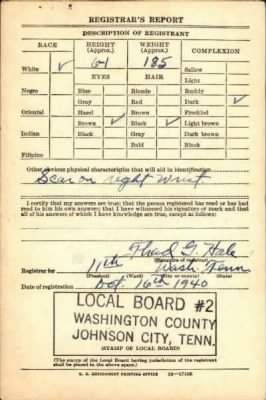 REGISTRAR'S REPORT
DESCRIPTION OF REGISTRANT
RACE HEIGHT (Approx.) WEIGHT (Approx.) COMPLEXION
White ✓ 6-1 185 Sallow
EYES HAIR Light
Negro Blue Blonde Ruddy
Gray Red Dark ✓
Oriental Hazel Brown Freckled
Brown ✓ Black ✓ Light brown
Indian Black Gray Dark brown
Bald Black
Filipino
Other obvious physical characteristics that will aid in identification
Scar on right wrist
I certify that my answers are true; that the person registered has read or has had
read to him his own answers; that I have witnessed his signature or mark and that
all of his answers of which I have knowledge are true, except as follows:
Thad G. Hale
(Signature of registrar)
Registrar for 11th Wash. Tenn
(Precinct) (Ward) (City or county) (State)
Date of registration Oct. 16th 1940
LOCAL BOARD #2
WASHINGTON COUNTY
JOHNSON CITY, TENN.
(STAMP OF LOCAL BOARD)
(The stamp of the Local Board having jurisdiction of the registrant
shall be placed in the above space.)
U. S. GOVERNMENT PRINTING OFFICE